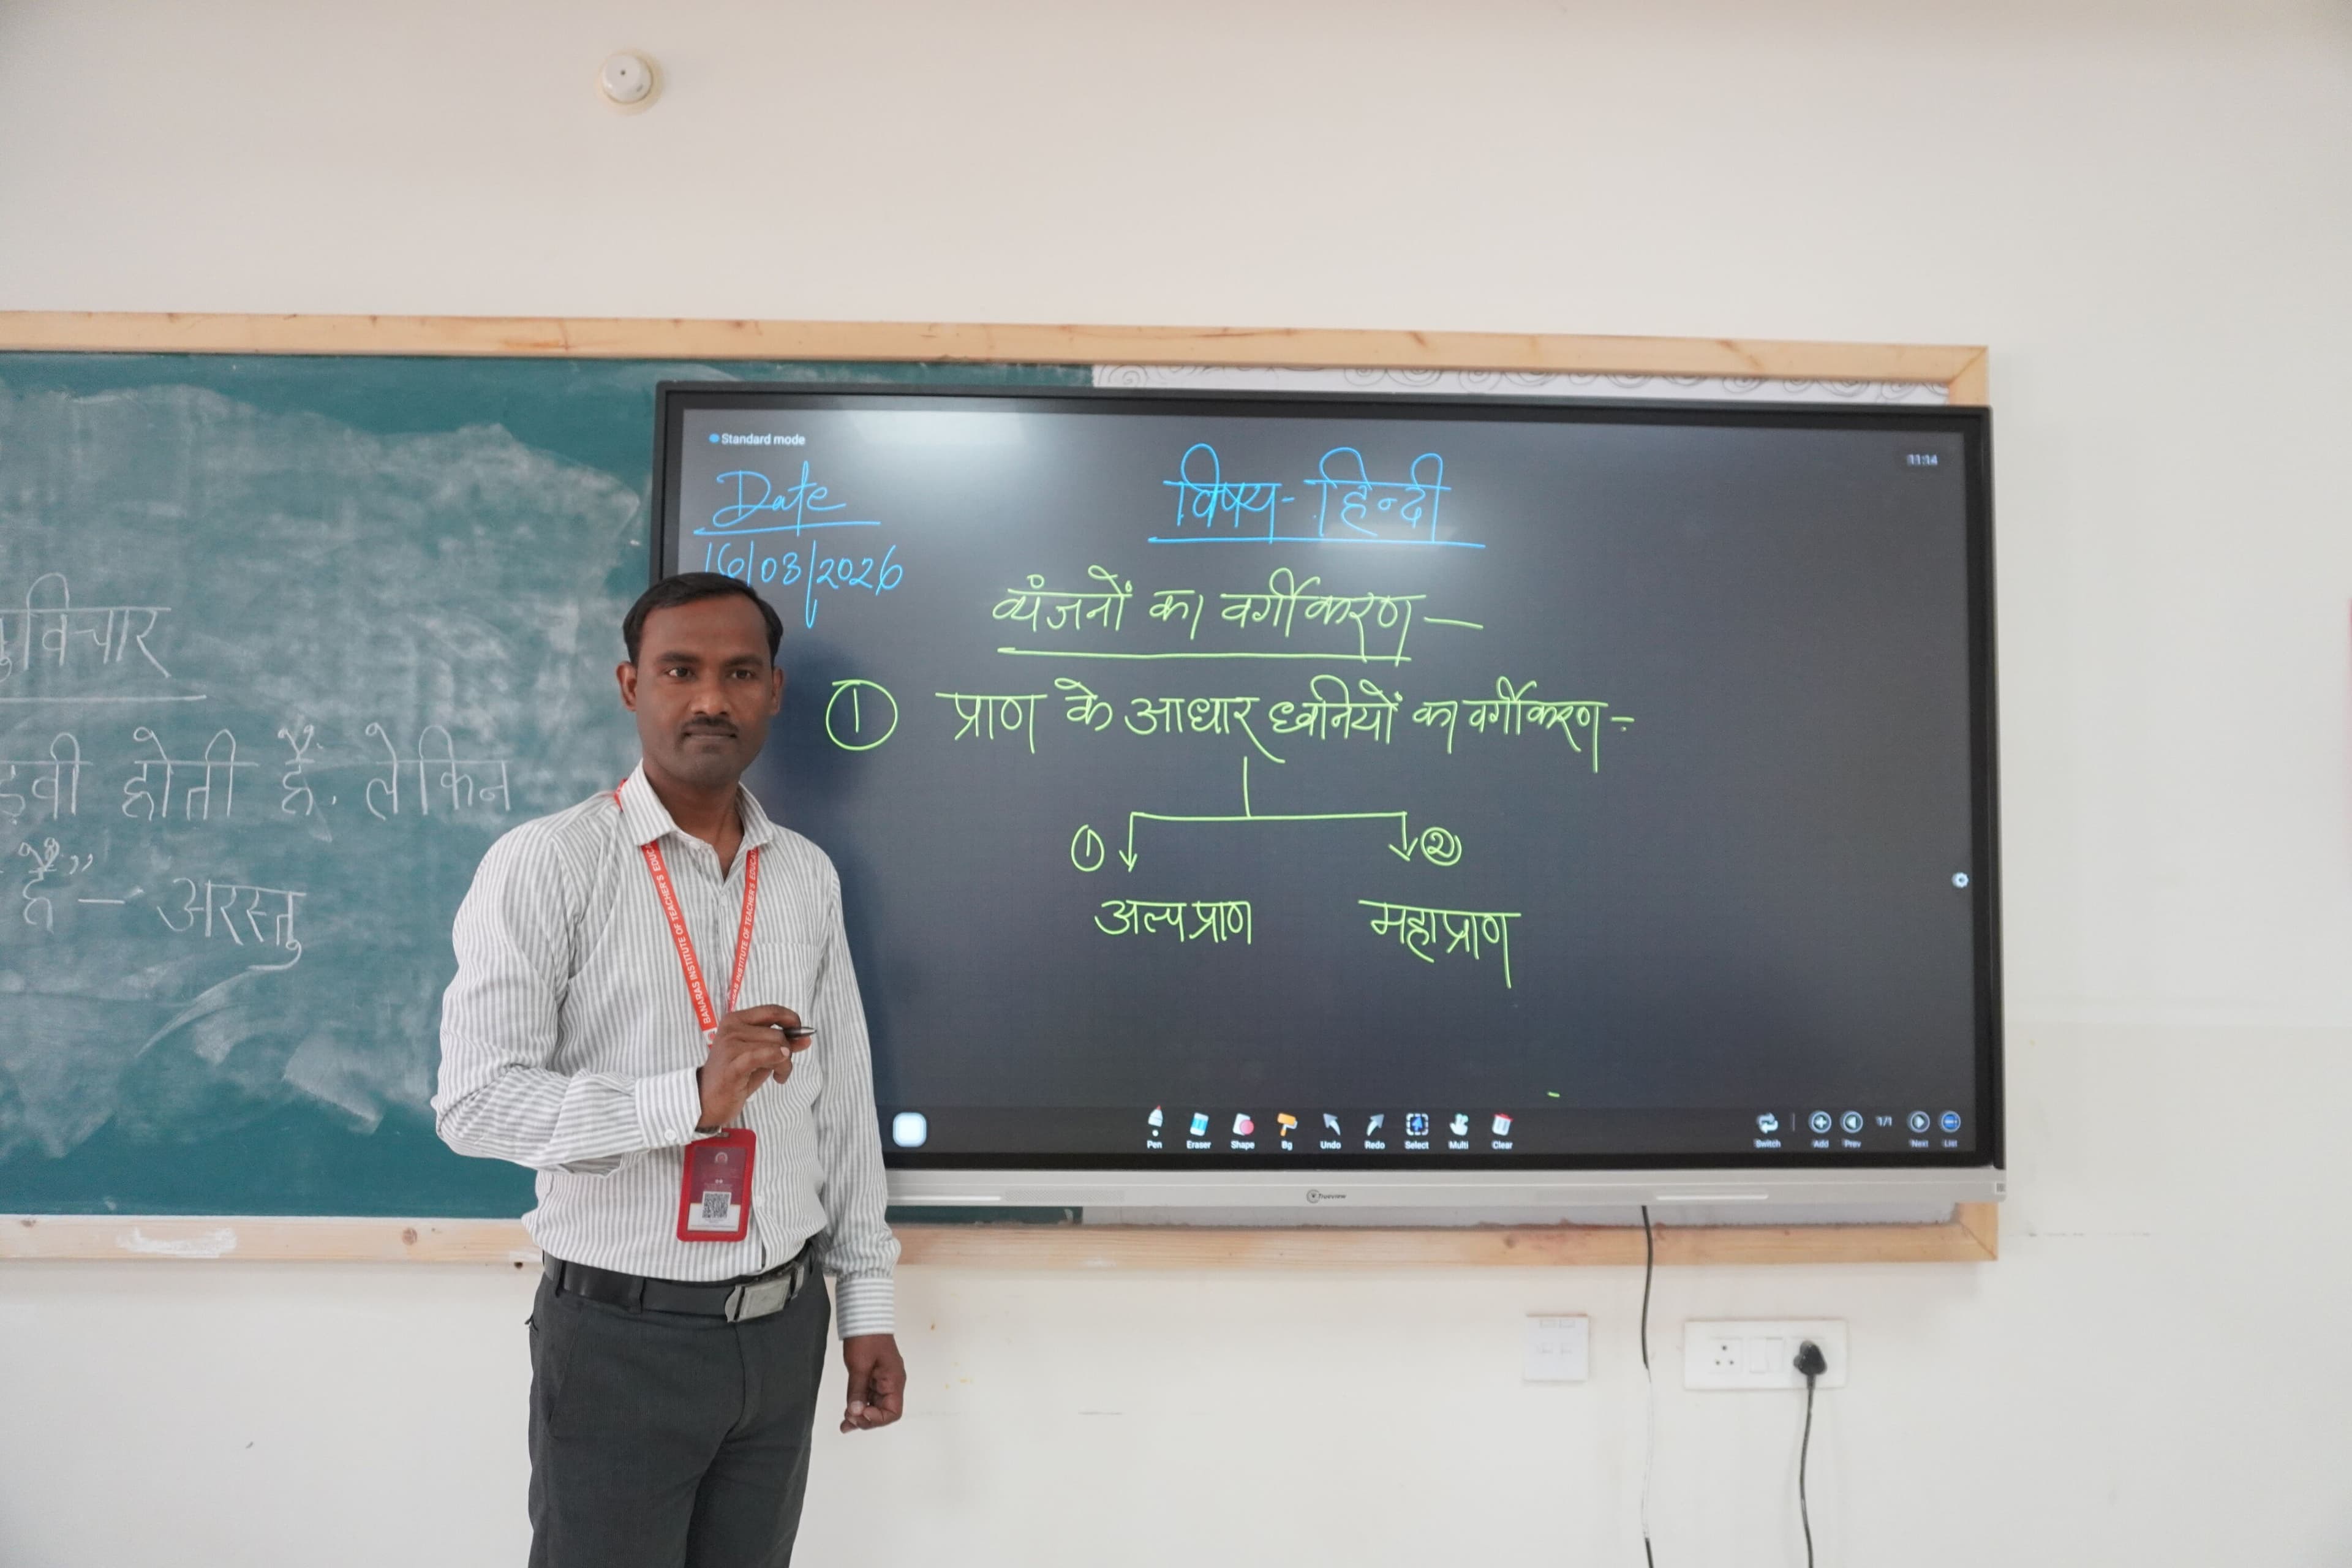 विचार
होती है. लेकिन
है” – अरस्तु
Standard mode
11:14
Date
16/03/2026
विषय - हिन्दी
व्यंजनों का वर्गीकरण —
① प्राण के आधार ध्वनियों का वर्गीकरण -
① ②
अल्पप्राण महाप्राण
Pen Eraser Shape Bg Undo Redo Select Multi Clear Switch Add Prev 1/1 Next List
BANARAS INSTITUTE OF TEACHER'S EDUCA
INSTITUTE OF TEACHER'S EDUCA